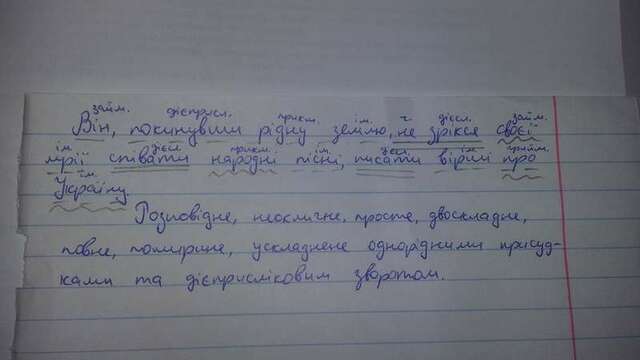 займ. дієприсл. прикм. ім. ч дієсл. займ.
Він, покинувши рідну землю, не зрікся своєї
ім. дієсл. прикм. ім. дієсл. ім. прийм.
мрії співати народні пісні, писати вірші про
ім.
Україну.
Розповідне, неоклічне, просте, двоскладне,
повне, поширене, ускладнене однорідними присуд-
ками та дієприслівковим зворотом.